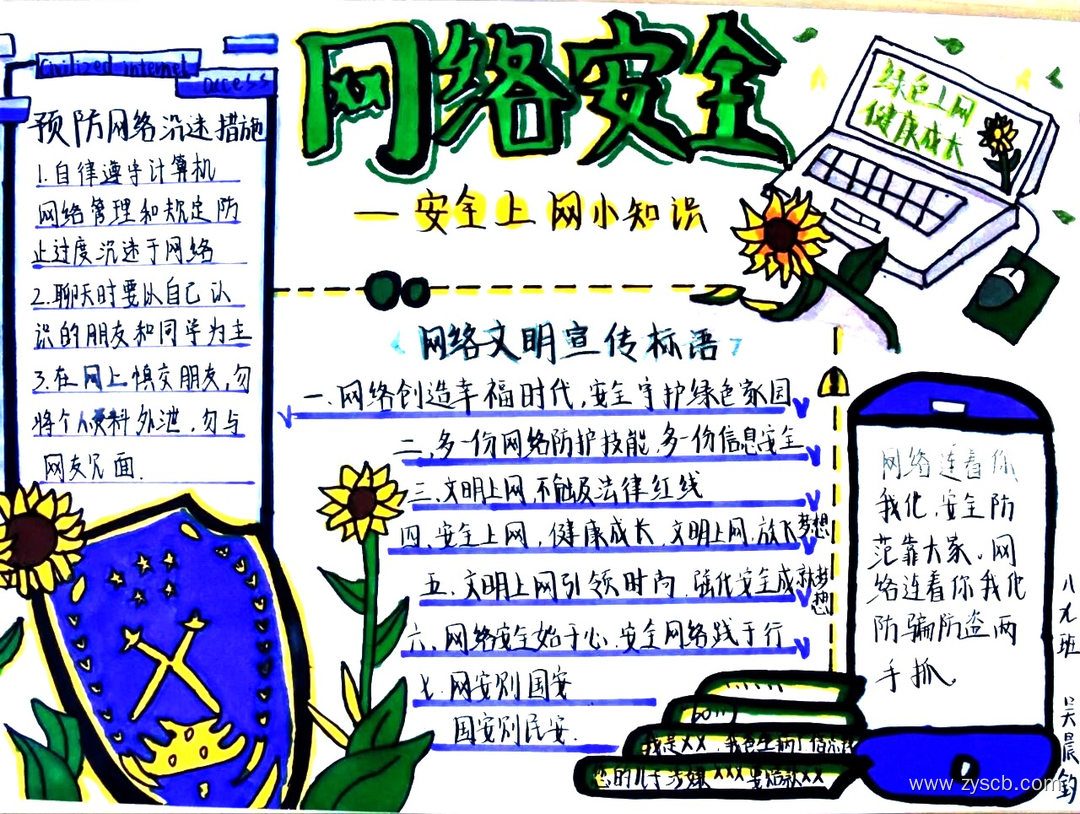 网络安全
一安全上网小知识
绿色上网
健康成长
Civilized internet
access
预防网络沉迷措施
1.自律遵守计算机
网络管理和规定防
止过度沉迷于网络
2.聊天时要以自己认
识的朋友和同学为主
3.在网上慎交朋友,勿
将个人资料外泄,勿与
网友见面.
网络文明宣传标语
一.网络创造幸福时代,安全守护绿色家园
二,多一份网络防护技能,多一份信息安全
三.文明上网,不触及法律红线
四、安全上网,健康成长,文明上网,放飞梦想
五、文明上网引领时尚,强化安全成就梦想
六、网络安全始于心,安全网络践于行
七.网安则国安
国安则民安.
网络连着你
我他,安全防
范靠大家。网
络连着你我他
防骗防盗两
手抓。
我是XX
您的儿子涉嫌XXX要给款XX
八九班
www.zyscb.com